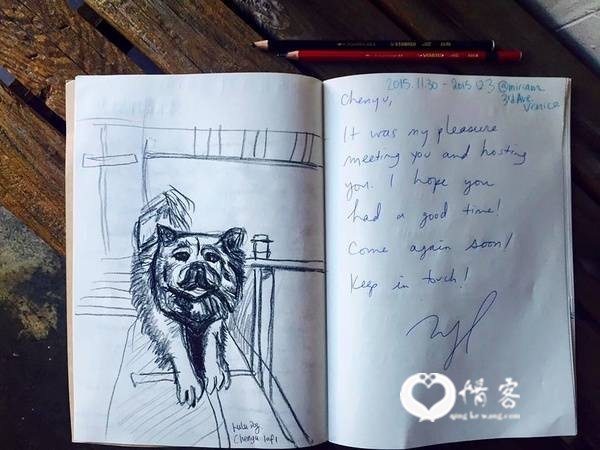 2015.11.30 - 2015.12.3 @miriam's
3rd Ave,
Venice
Chenyu,
It was my pleasure
meeting you and hosting
you. I hope you
had a good time!
Come again soon!
Keep in touch!
Chenyu
情客
qing ke wang.com